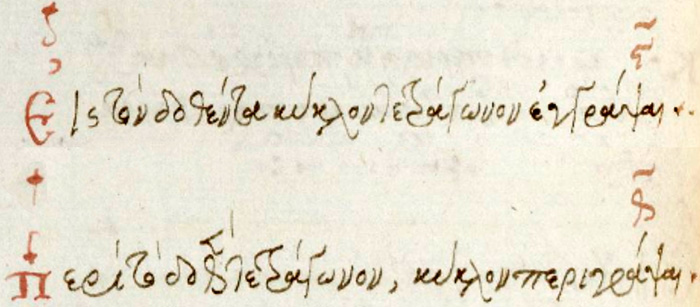 Εἰς τὸν δοθέντα κύκλον τετράγωνον ἐγγράψαι..
Περὶ τὸ δοθὲν τετράγωνον, κύκλον περιγράψαι.